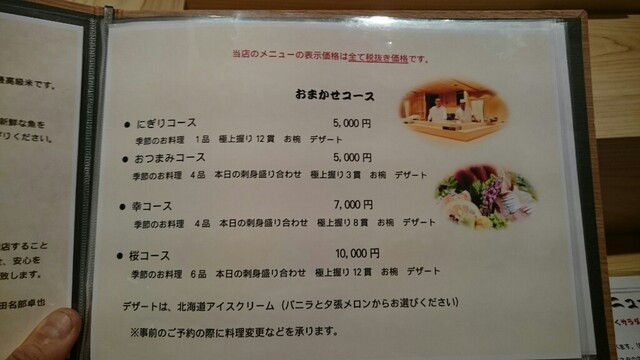 最高級米です。
新鮮な魚を
ください。
店すること
、安心を
致します。
田名部卓也
当店のメニューの表示価格は全て税抜き価格です。
おまかせコース
● にぎりコース 5,000円
季節のお料理 1品 極上握り12貫 お椀 デザート
● おつまみコース 5,000円
季節のお料理 4品 本日の刺身盛り合わせ 極上握り3貫 お椀 デザート
● 幸コース 7,000円
季節のお料理 4品 本日の刺身盛り合わせ 極上握り8貫 お椀 デザート
● 桜コース 10,000円
季節のお料理 6品 本日の刺身盛り合わせ 極上握り12貫 お椀 デザート
デザートは、北海道アイスクリーム(バニラと夕張メロンからお選びください)
※事前のご予約の際に料理変更などを承ります。